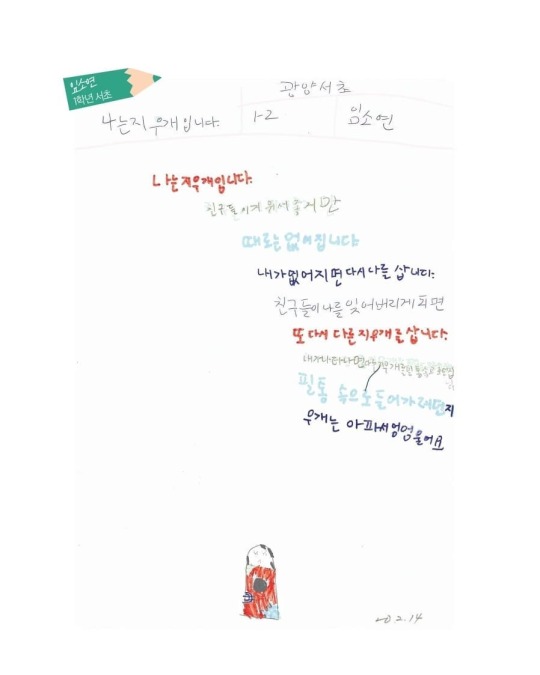 임소연
1학년 서초
관양서초
나는지우개입니다. 1-2 임소연
나는지우개입니다.
친구들에게 줘서 좋지만
때로는없어집니다.
내가없어지면다시나를 삽니다.
친구들이나를잊어버리게되면
또다시다른지우개를삽니다.
내가나타나면
필통 속으로들어가려던지
우개는 아파서엉엉울어요
2.14